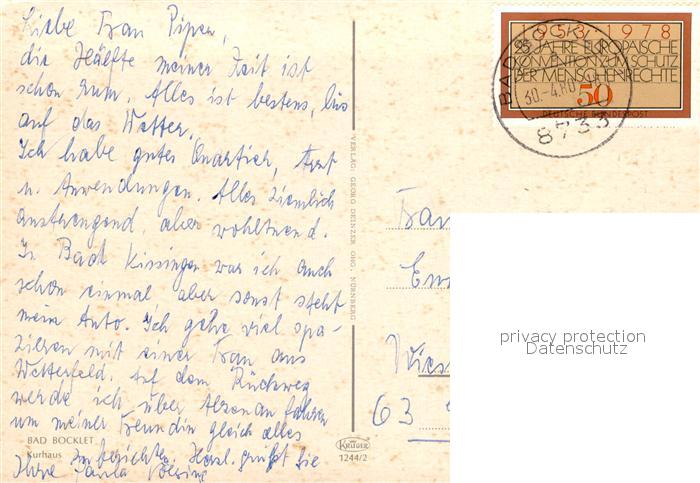 Liebe Frau Piper,
die Hälfte meiner Zeit ist
schon rum. Alles ist bestens, bis
auf das Wetter.
Ich habe gutes Quartier, Arzt
u. Anwendungen. Alles ziemlich
anstrengend, aber wohltuend.
In Bad Kissingen war ich auch
schon einmal aber sonst steht
mein Auto. Ich gehe viel spa-
zieren mit einer Frau aus
Wetterfeld. Auf dem Rückweg
werde ich über fahren
um meiner Freundin gleich alles
zu berichten. Herzl. grüßt Sie
Ihre Paula
BAD BOCKLET
Kurhaus
VERLAG: GEORG DEINZER OHG, NÜRNBERG
KRÜGER
1244/2
1953 1978
25 JAHRE EUROPÄISCHE
KONVENTION ZUM SCHUTZ
DER MENSCHENRECHTE
50
DEUTSCHE BUNDESPOST
30.-4.80
8733
Frau
63
privacy protection
Datenschutz